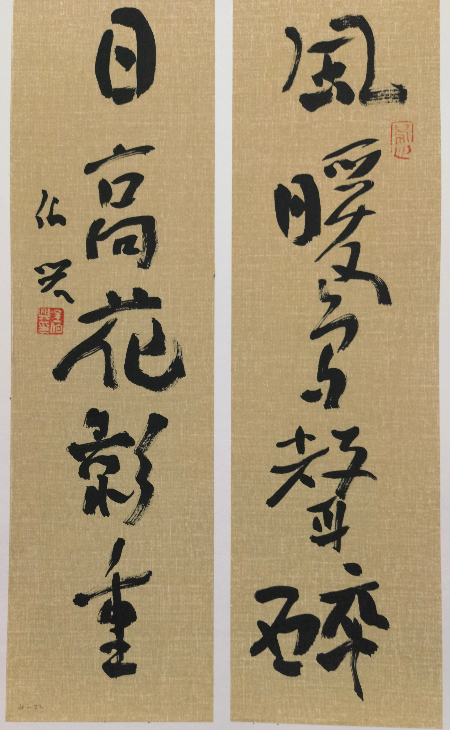 風暖鳥聲碎
日高花影重